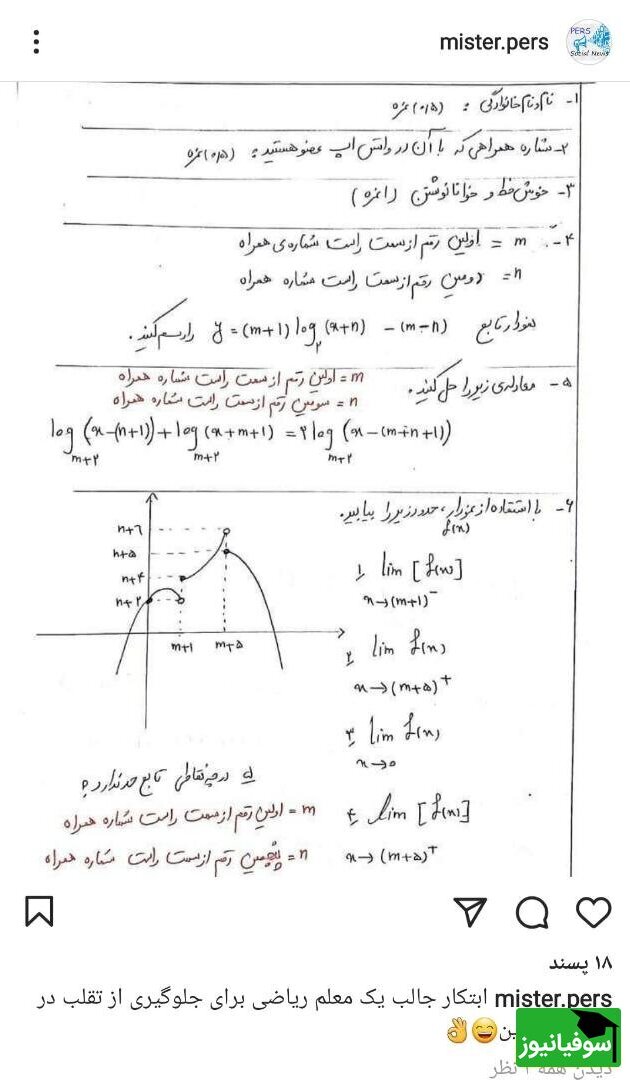 mister.pers
PERS
Social News
۱- نام و نام خانوادگی : (۰/۵) نمره
۲- شماره همراهی که با آن در واتس اپ عضو هستید : (۰/۵) نمره
۳- خوش خط و خوانا نوشتن (۱ نمره)
۴- m = اولین رقم از سمت راست شماره ی همراه
n = دومین رقم از سمت راست شماره همراه
نمودار تابع y = (m+1) log₂ (x+n) - (m-n) را رسم کنید .
۵- معادله ی زیر را حل کنید .
m = اولین رقم از سمت راست شماره همراه
n = سومین رقم از سمت راست شماره همراه
log (x-(n+1)) + log (x+m+1) = ۲ log (x-(m+n+1))
m+۲ m+۲ m+۲
۶- با استفاده از نمودار f(x) ، حدود زیر را بیابید.
n+۶
n+۵
n+۴
n+۲
m+۱ m+۵
۱) lim [f(x)]
x→(m+۱)⁻
۲) lim f(x)
x→(m+۵)⁺
۳) lim f(x)
x→۰
۴) lim [f(x)]
x→(m+۵)⁺
در چه نقاطی تابع حد ندارد ؟
m = اولین رقم از سمت راست شماره همراه
n = پنجمین رقم از سمت راست شماره همراه
۱۸ پسند
mister.pers ابتکار جالب یک معلم ریاضی برای جلوگیری از تقلب در
ین😄👌
سوفیانیوز
دیدن همه ۱ نظر